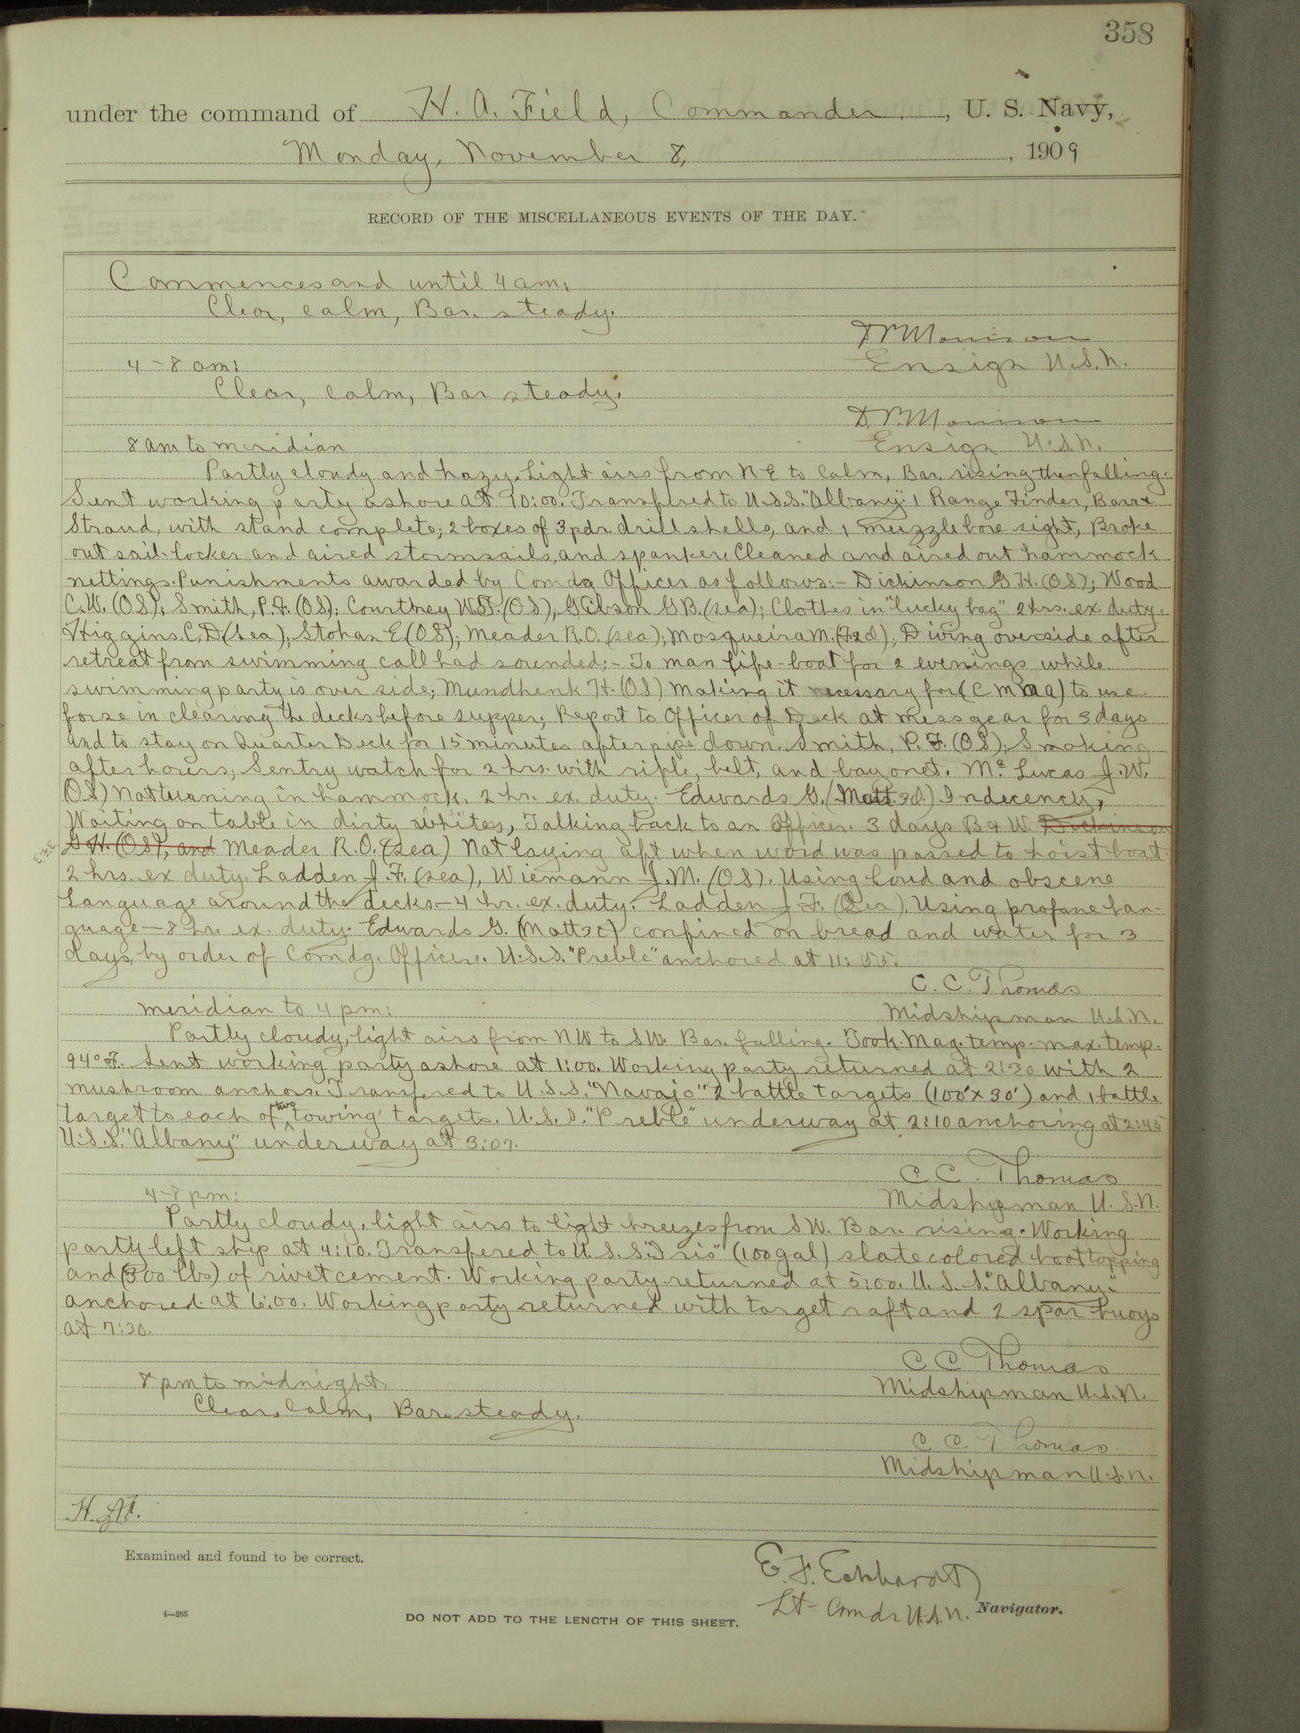 358
under the command of H. A. Field, Commander, U. S. Navy,
Monday, November 8, 1909
RECORD OF THE MISCELLANEOUS EVENTS OF THE DAY.
Commences and until 4 am:
Clear, calm, Bar. steady.
D P Morrison
Ensign U.S.N.
4-8 am:
Clear, calm, Bar steady.
D. P. Morrison
Ensign U.S.N.
8 am to meridian
Partly cloudy and hazy. Light airs from NE to calm, Bar. rising then falling.
Sent working party ashore at 10:00. Transfered to U.S.S. "Albany" 1 Range Finder, Barr &
Stroud, with stand complete; 2 boxes of 3 pdr drill shells, and 1 muzzle bore sight, Broke
out sail-locker and aired stormsails, and spanker. Cleaned and aired out hammock
nettings. Punishments awarded by Comdg Officer as follows:- Dickinson G.H. (OS); Wood
C.W. (OS); Smith, P.F. (OS); Courtney W.F. (OS), Gibson G B. (sea); Clothes in "lucky bag" 2 hrs. ex. duty.
Higgins. C, D (sea), Stohan E (OS); Meader R.O. (sea); Mosqueira M. (F2cl), Diving overside after
retreat from swimming call had sounded;- To man life-boat for 2 evenings while
swimming party is over side; Mundhenk H. (OS) Making it necessary for (C M A A) to use
forse in clearing the decks before supper; Report to Officer of Deck at messgear for 3 days
and to stay on Quarter Deck for 15 minutes after pipe down. Smith, P. F. (OS); Smoking
after hours, Sentry watch for 2 hrs. with rifle, belt, and bayonet. Mc Lucas J. W.
(OS) Not turning in hammock. 2 hr. ex. duty. Edwards G. (Matt. 3cl.) Indecency,
Waiting on table in dirty whites, Talking back to an Officer. 3 days B & W. Dickinson
G H. (OS), and Meader R.O. (sea) Not laying aft when word was passed to hoist boat
2 hrs. ex duty. Ladden J. F. (sea), Wiemann J. M. (OS). Using loud and obscene
language around the decks.- 4 hr. ex. duty. Ladden J. F. (Sea). Using profane lan-
guage - 8 hr. ex. duty. Edwards G. (Matt 3c) confined on bread and water for 3
days, by order of Comdg. Officer. U.S.S. "Preble" anchored at 11:55.
C. C. Thomas
meridian to 4 pm:
Midshipman U.S.N.
Partly cloudy, light airs from NW to SW. Bar. falling. Took Mag. temp. max. temp.
94° F. Sent working party ashore at 1:00. Working party returned at 2:30 with 2
mushroom anchors. Transfered to U.S.S. "Navajo" 2 battle targets (100'x30') and 1 battle
target to each of two towing targets. U.S.S. "Preble" underway at 2:10 anchoring at 2:45
U.S.S. "Albany" underway at 3:07.
C C. Thomas
4-8 pm:
Midshipman U.S.N.
Partly cloudy, light airs to light breezes from SW. Bar. rising. Working
party left ship at 4:10. Transfered to U. S. S "Iris" (100 gal) slate colored boottopping
and (300 lbs) of rivet cement. Working party returned at 5:00. U. S. S. "Albany"
anchored at 6:00. Working party returned with target raft and 2 spar buoys
at 7:30.
C C Thomas
8 pm to midnight
Midshipman U.S.N.
Clear, Calm, Bar. steady.
C C. Thomas
Midshipman U.S.N.
Examined and found to be correct.
E. F. Eckhardt
Lt- Comdr U.S.N. Navigator.
4—265
DO NOT ADD TO THE LENGTH OF THIS SHEET.